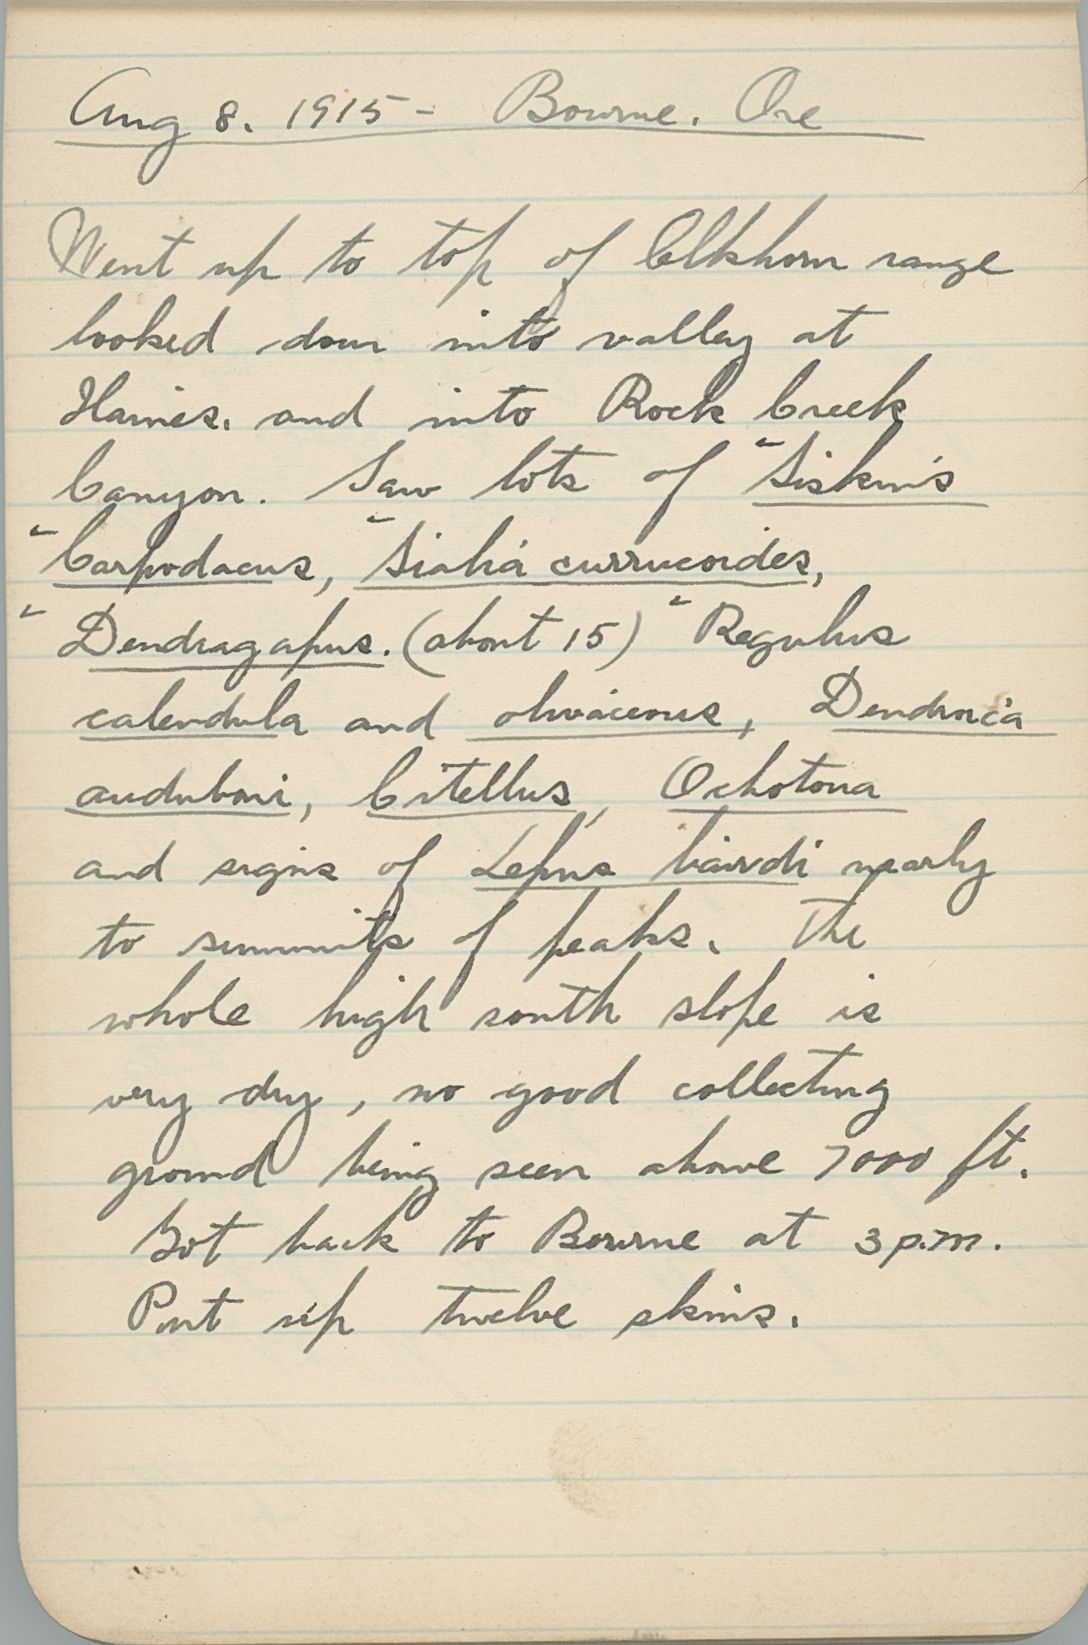 Aug 8. 1915 - Bourne. Ore
Went up to top of Elkhorn range
looked down into valley at
Haines. and into Rock Creek
Canyon. Saw lots of Siskins
Carpodacus, Sialia currucoides,
Dendragapus. (about 15) Regulus
calendula and olivaceous, Dendroica
auduboni, Citellus, Ochotona
and signs of Lepus bairdi nearly
to summits of peaks. The
whole high south slope is
very dry, no good collecting
ground being seen above 7000 ft.
Got back to Bourne at 3 p.m.
Put up twelve skins.